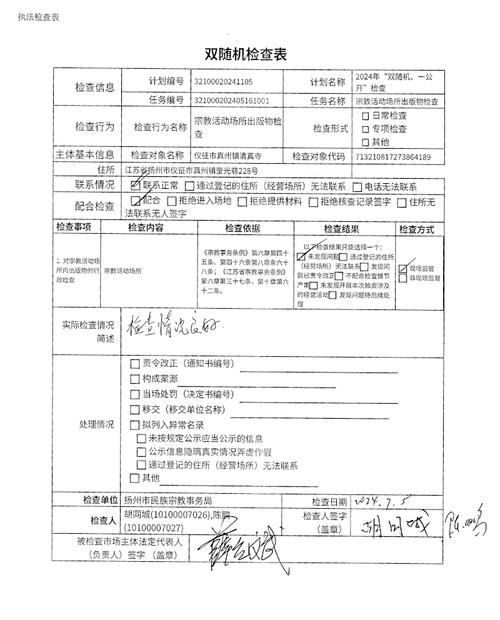 执法检查表
双随机检查表
检查信息 计划编号 32100020241105 计划名称 2024年“双随机、一公开”检查
任务编号 321000202405161001 任务名称 宗教活动场所出版物检查
检查行为 检查行为名称 宗教活动场所出版物检查 检查形式 □ 日常检查
□ 专项检查
□ 其他
主体基本信息 检查对象名称 仪征市真州镇清真寺 检查对象代码 713210817273864189
住所 江苏省扬州市仪征市真州镇奎光巷228号
联系情况 ☑ 联系正常 □ 通过登记的住所（经营场所）无法联系 □ 电话无法联系
配合检查 ☑ 配合 □ 拒绝进入场地 □ 拒绝提供材料 □ 拒绝核查记录签字 □ 住所无法联系无人签字
检查事项 检查内容 检查依据 检查结果 检查方式
1. 对宗教活动场所内出版物的行政检查
宗教活动场所
《宗教事务条例》第六章第四十五条、第四十六条第八章第六十八条；《江苏省宗教事务条例》第六章第三十七条，第十章第六十二条。
以下检查结果只能选择一个：
☑ 未发现问题 □ 通过登记的住所（经营场所）无法联系 □ 发现问题已责令改正 □ 不配合检查情节严重 □ 未发现开展本次抽查涉及的经营活动 □ 发现问题待后续处理
☑ 现场监管
□ 非现场监管
实际检查情况简述 检查情况良好.
处理情况
□ 责令改正（通知书编号）
□ 构成案源
□ 当场处罚（决定书编号）
□ 移交（移交单位名称）
□ 拟列入异常名录
□ 未按规定公示应当公示的信息
□ 公示信息隐瞒真实情况弄虚作假
□ 通过登记的住所（经营场所）无法联系
□ 其他
检查单位 扬州市民族宗教事务局 检查日期 2024.7.5
检查人 胡同城(10100007026),陈鹏(10100007027) 检查人签字（盖章） 胡同城 陈鹏
被检查市场主体法定代表人（负责人）签字（盖章）